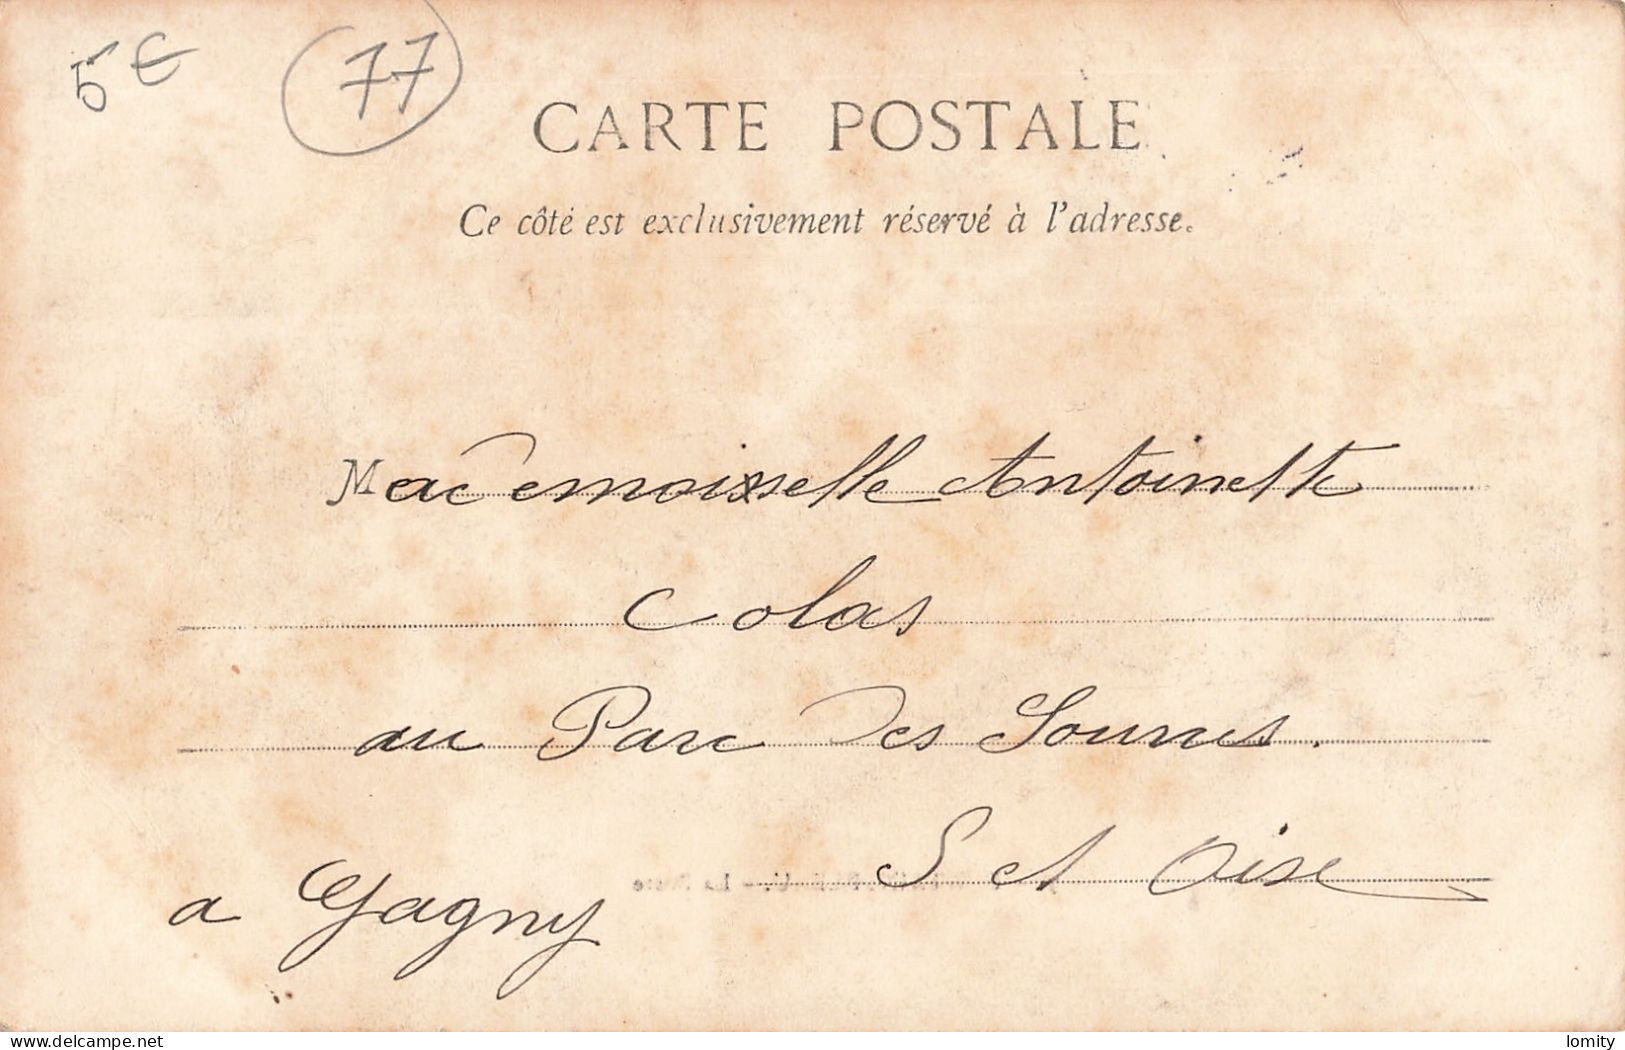 5 € 77
CARTE POSTALE
Ce côté est exclusivement réservé à l'adresse.
Mademoisselle Antoinette
Colas
au Parc Des
S et Oise
a Gagny
www.delcampe.net
lomity